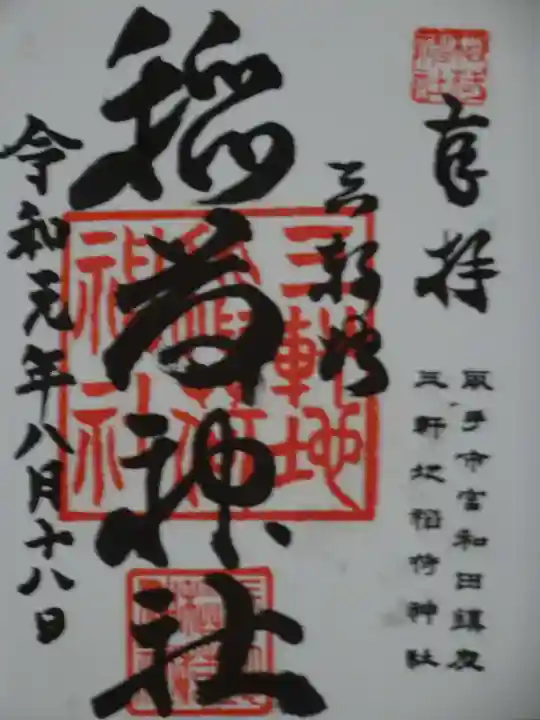 奉拝
取手市宮和田鎮座
三軒地稲荷神社
三軒地
稲荷神社
令和元年八月十八日
三軒地
稲荷
神社